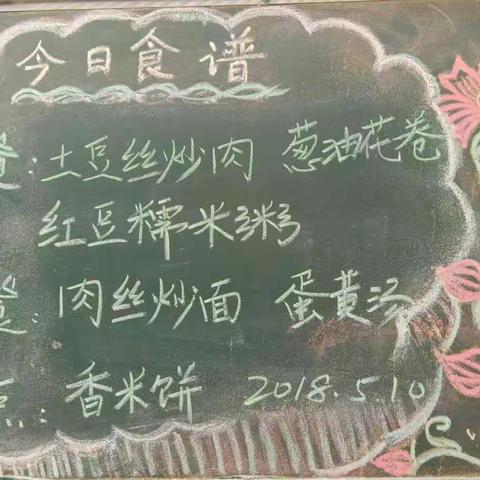 今日食谱
土豆丝炒肉 葱油花卷
红豆糯米粥
肉丝炒面 蛋黄汤
点: 香米饼 2018.5.10